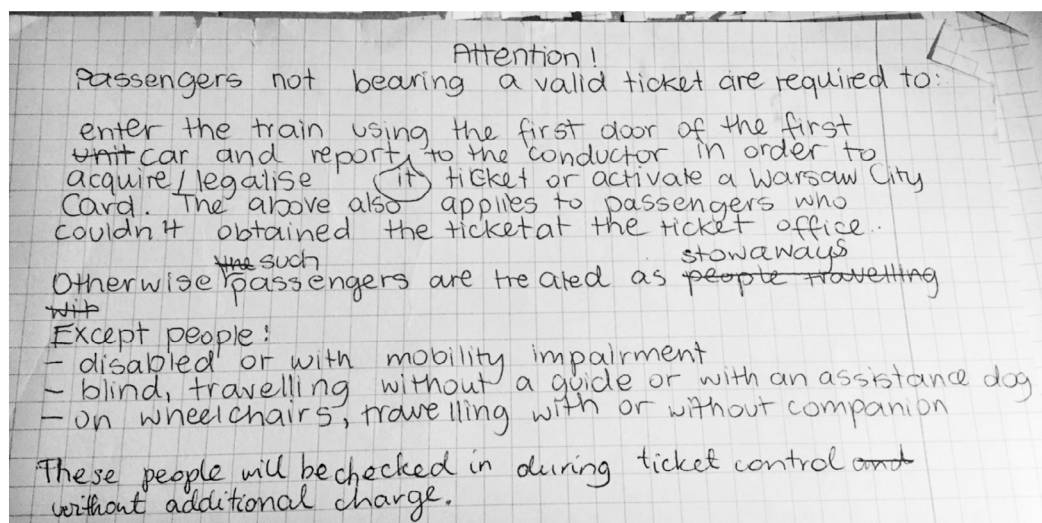 Attention!
Passengers not bearing a valid ticket are required to:
enter the train using the first door of the first
unit car and report, to the conductor in order to
acquire/legalise it ticket or activate a Warsaw City
Card. The above also applies to passengers who
couldn't obtained the ticket at the ticket office..
the such stowaways
Otherwise passengers are treated as people travelling
wit
Except people:
- disabled or with mobility impairment
- blind, travelling without a guide or with an assistance dog
- on wheelchairs, travelling with or without companion
These people will be checked in during ticket control and
without additional charge.